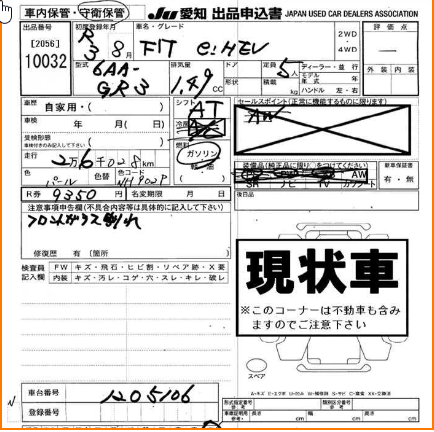 車内保管・守衛保管
JU 愛知 出品申込書 JAPAN USED CAR DEALERS ASSOCIATION
出品番号
[2056]
10032
初度登録年月
R 3 8月
車名・グレード
FIT e:HEV
2WD
4WD
評価点
外装 内装
型式
6AA-
GR3
排気量
1.49 CC
ドア
形状
定員
5人
積載
kg
ディーラー・並行
モデル年式 年
ハンドル 左・右
車歴
自家用・( )
車検
年 月( 日)
シフト
AT
冷房
燃料
ガソリン
セールスポイント(正常に機能するものに限ります)
AW
走行
2万6千028km
色
パール
色替
色コード
NH902P
装備品(純正品に限り)をつけてください
AW
SR ナビ TV カワシート
新車保証書
有・無
後日品
R券 9350円
名変期限 月 日
注意事項申告欄(不具合内容等は具体的に記入して下さい)
フロントガラス割れ
修復歴 有(箇所 )
検査員記入欄
FW キズ・飛石・ヒビ割・リペア跡・X要
内装 キズ・汚レ・コゲ・穴・スレ・キレ・破レ
現状車
※このコーナーは不動車も含み
ますのでご注意下さい
スペア
車台番号
1205106
登録番号